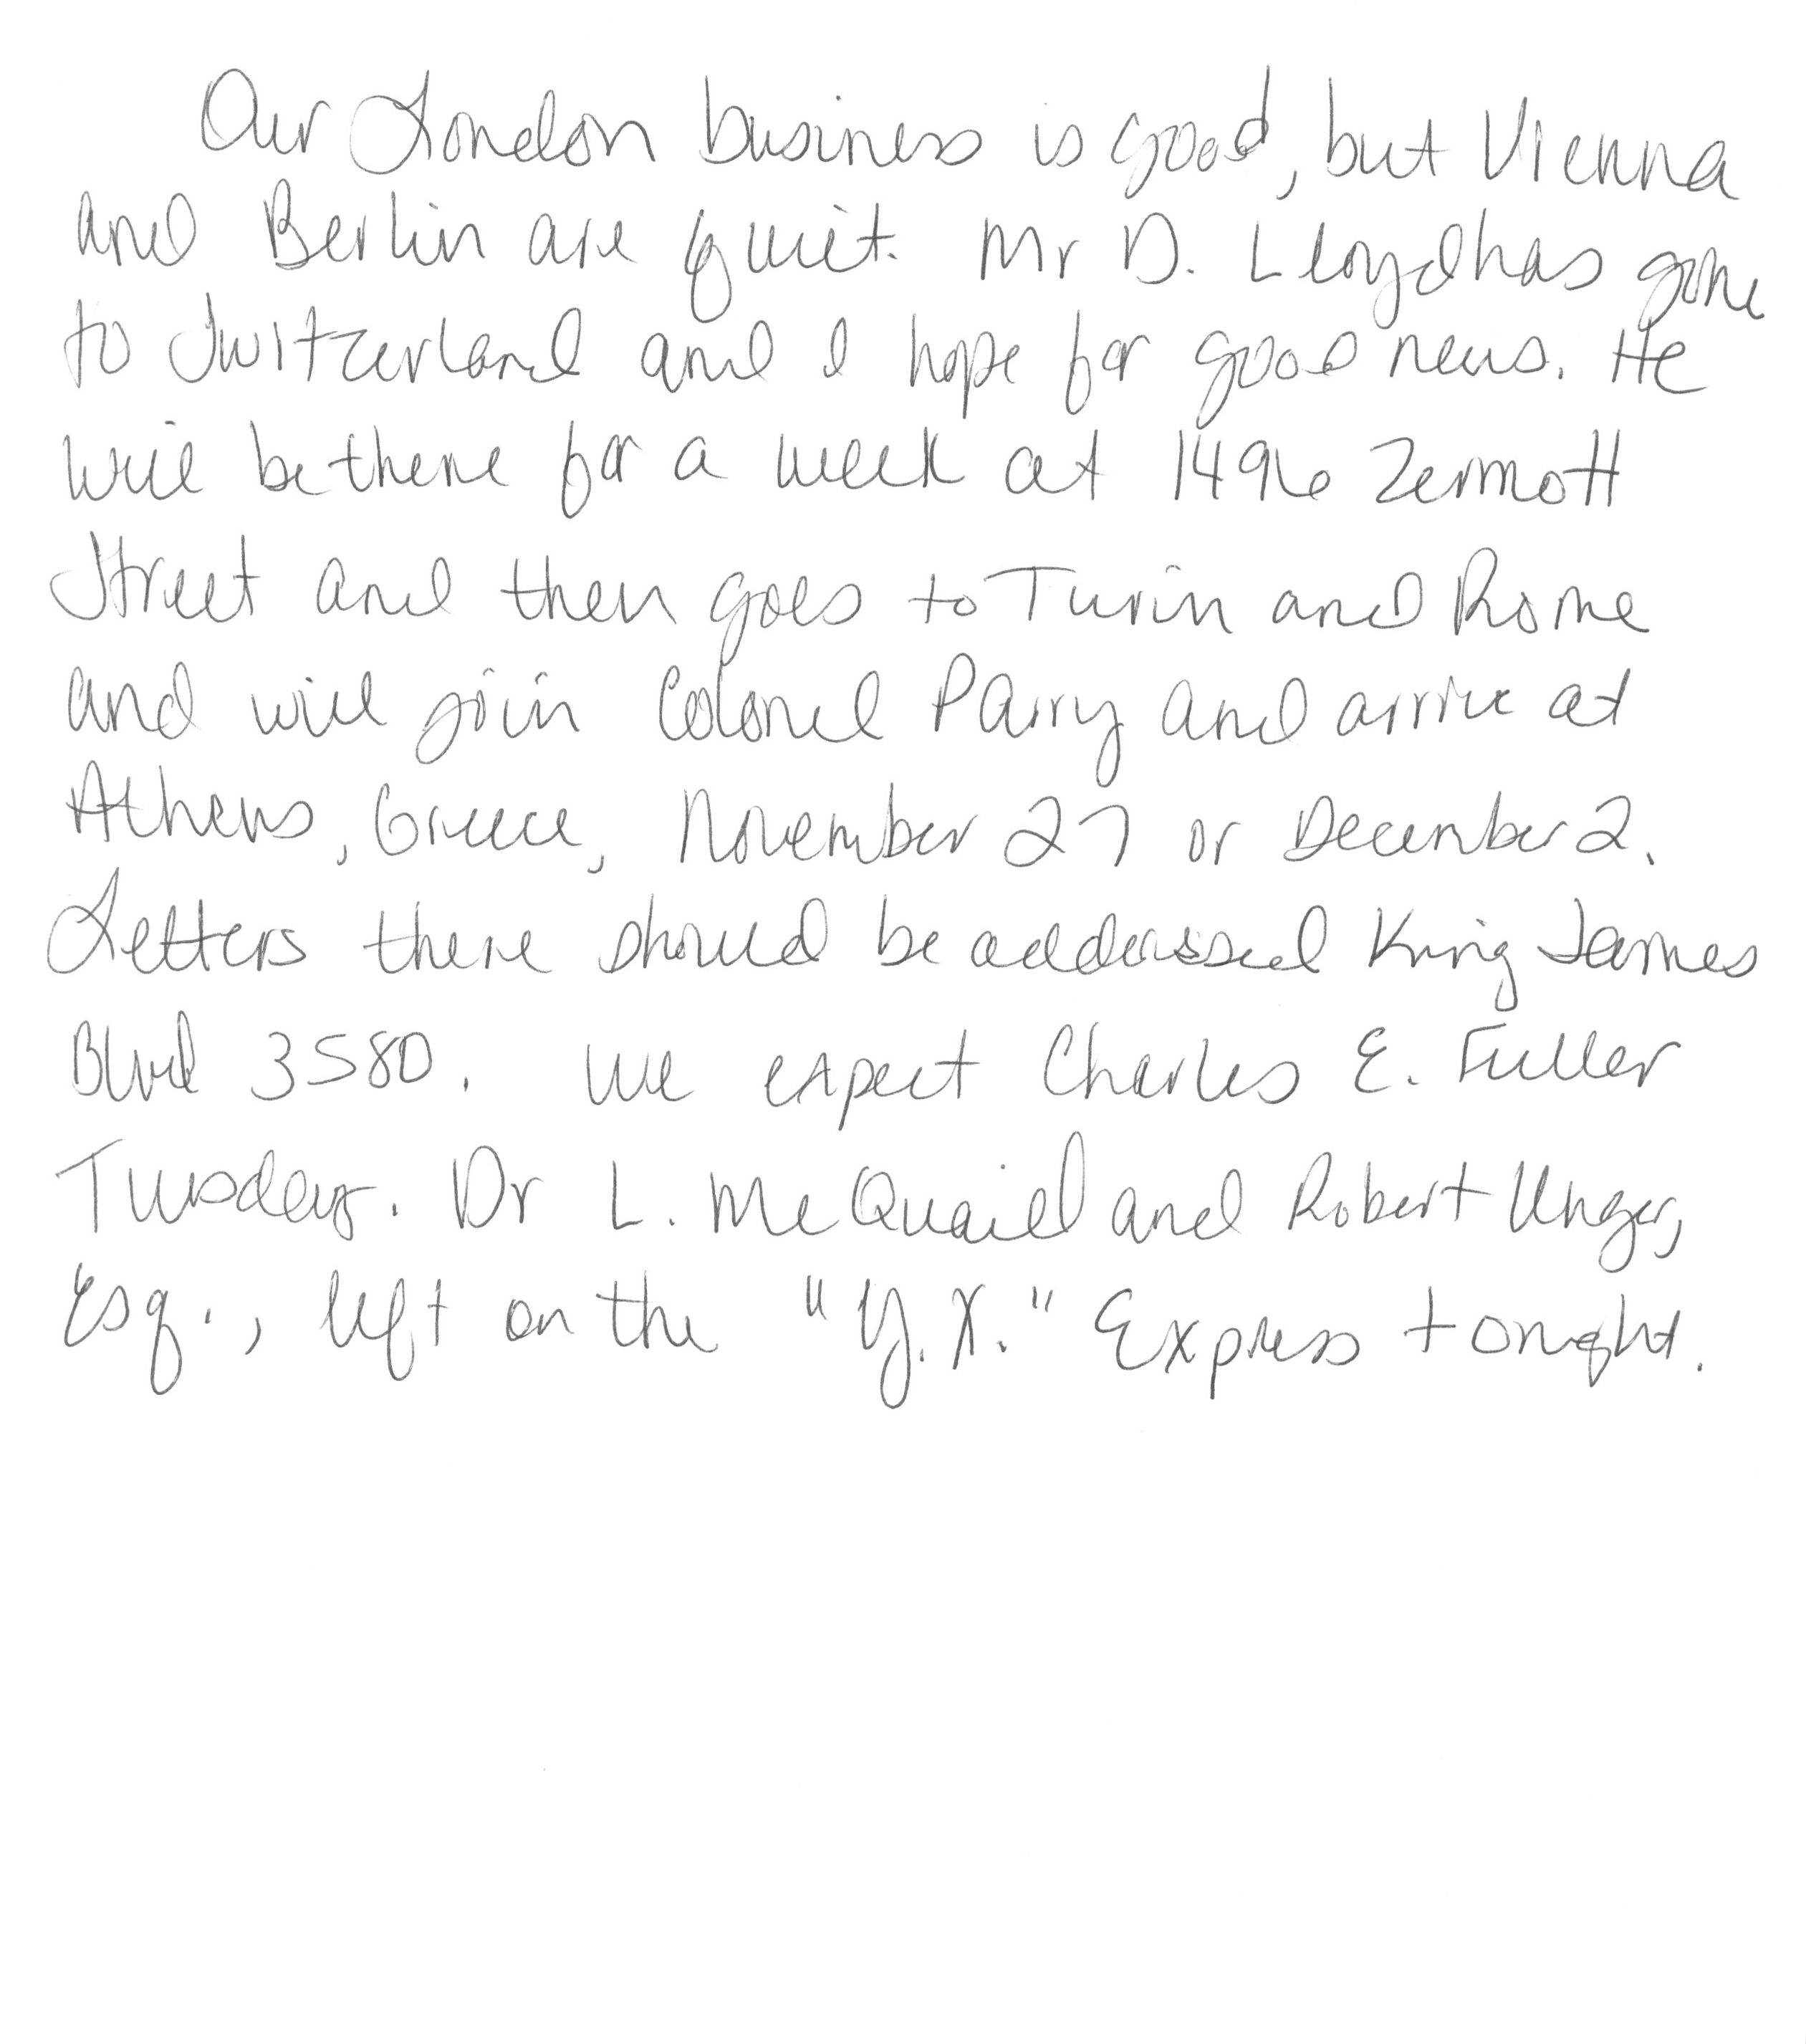 Our London business is good, but Vienna
and Berlin are quiet. Mr D. Lloyd has gone
to Switzerland and I hope for good news. He
will be there for a week at 1496 Zermott
Street and then goes to Turin and Rome
and will join Colonel Parry and arrive at
Athens, Greece, November 27 or December 2.
Letters there should be addressed King James
Blvd 3580. We expect Charles E. Fuller
Tuesday. Dr L. McQuaid and Robert Unger,
Esq., left on the "Y.X." Express tonight.